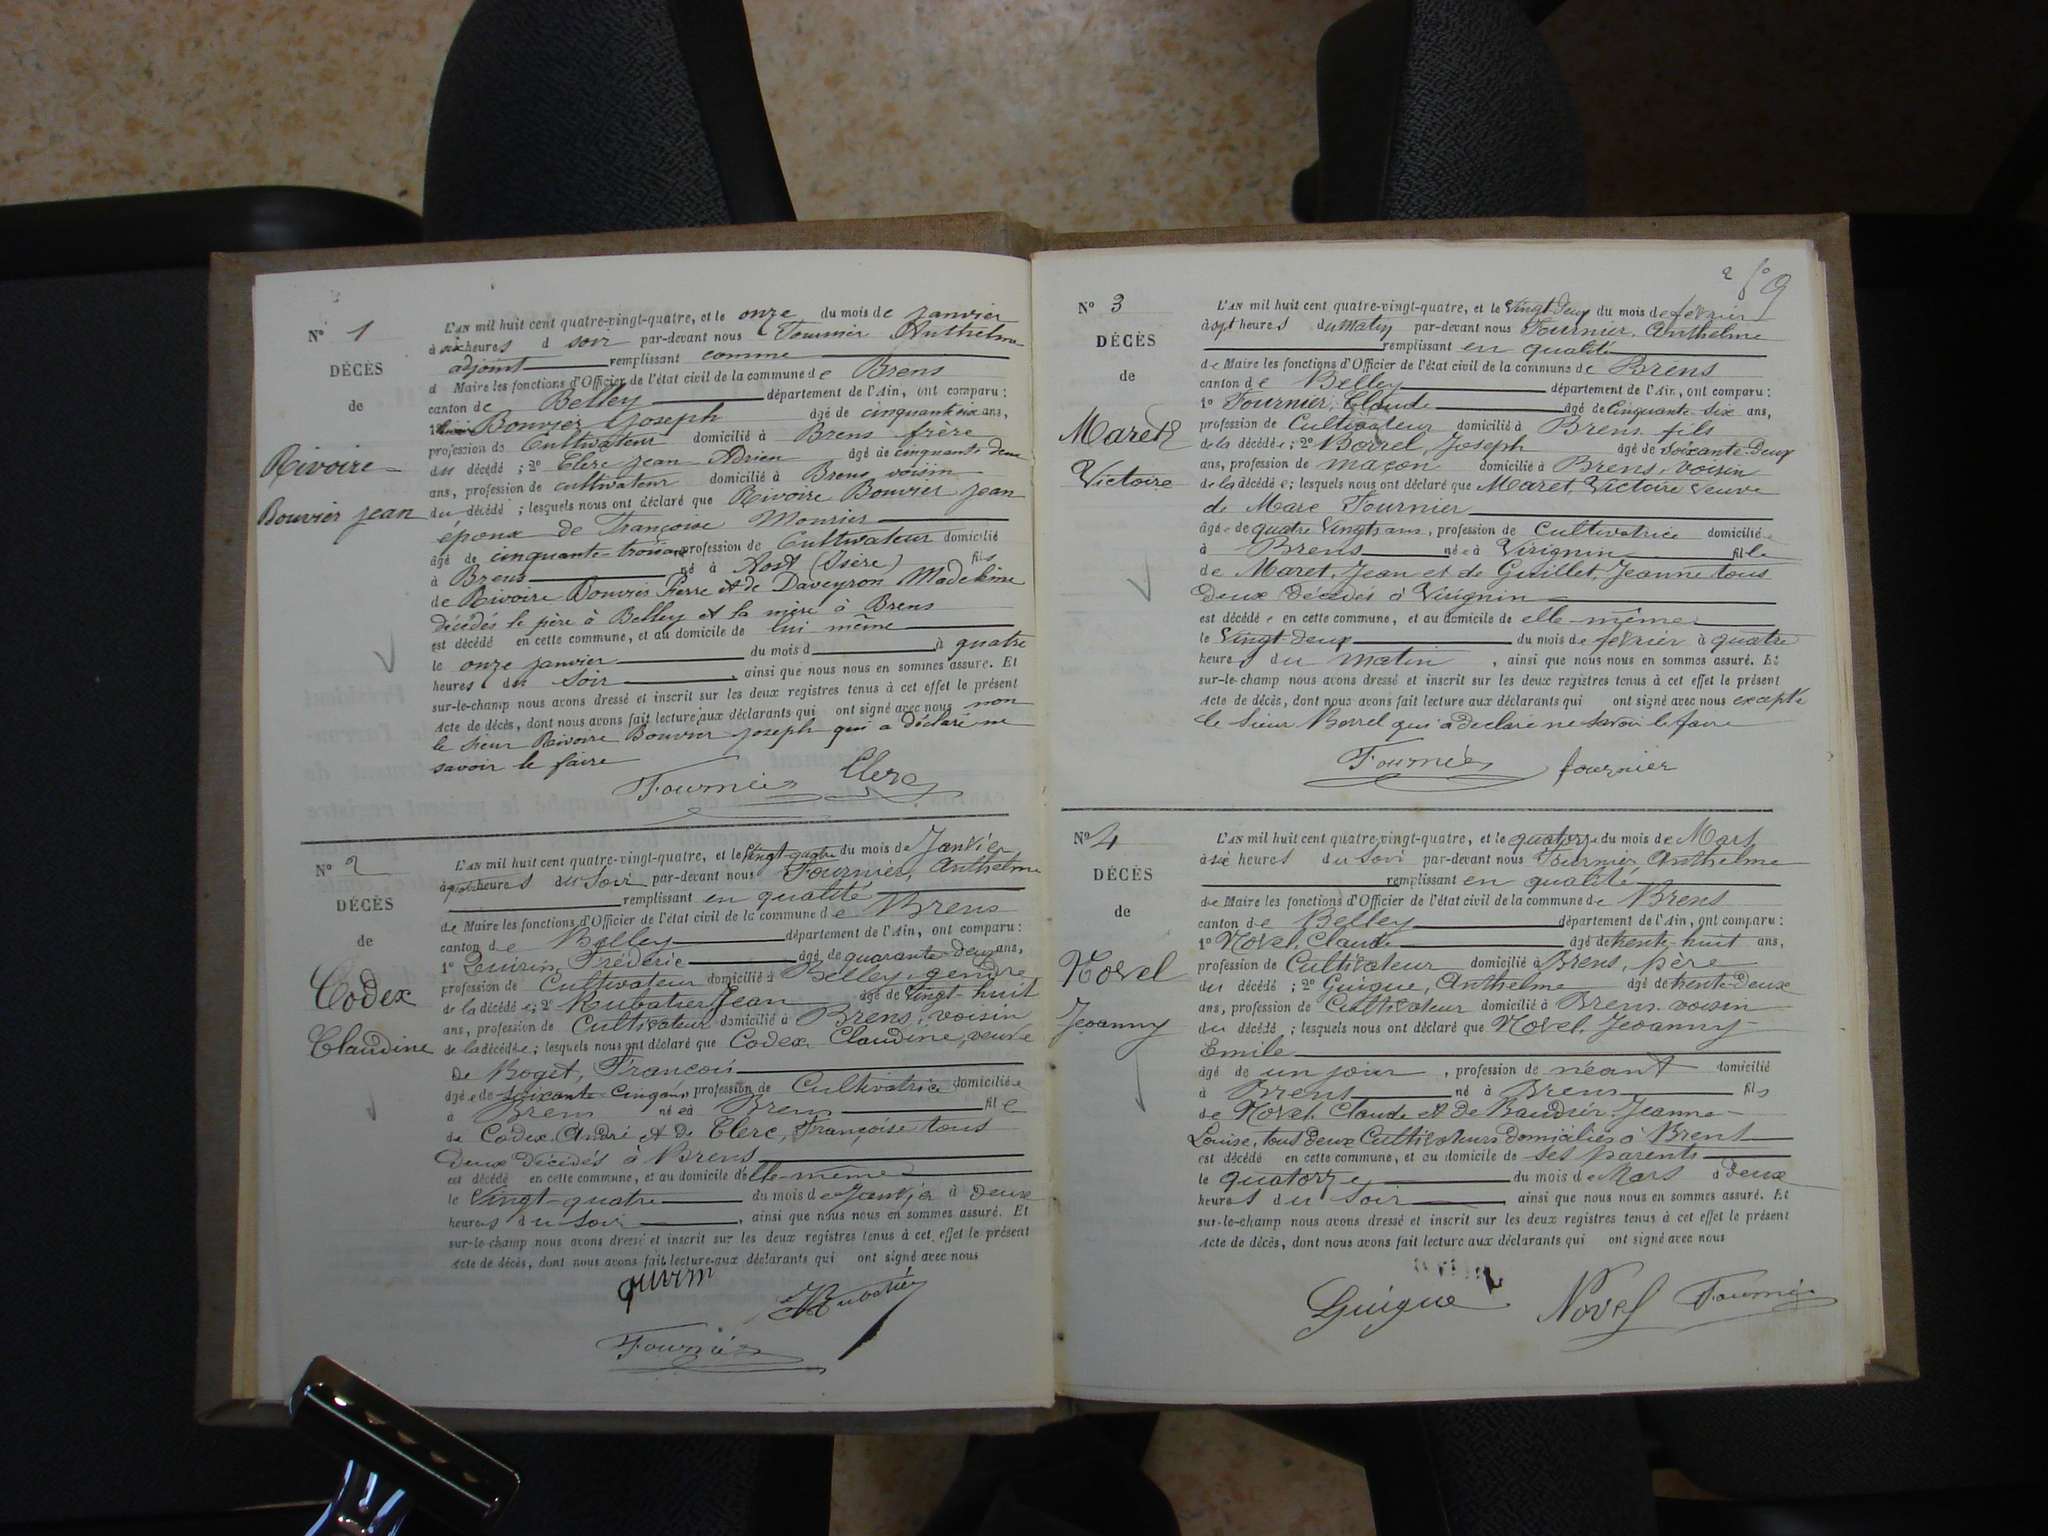 Nº 1
DÉCÈS
de
Rivoire
Bouvier Jean
L'AN mil huit cent quatre-vingt-quatre, et le onze du mois de janvier
à six heures d soir par-devant nous Fournier Anthelme
adjoint remplissant comme
d Maire les fonctions d'Officier de l'état civil de la commune de Brens
canton de Belley département de l'Ain, ont comparu :
1º Bouvier Joseph âgé de cinquante six ans,
profession de Cultivateur domicilié à Brens frère
du décédé ; 2º Clerc Jean Adrien âgé de cinquante deux
ans, profession de cultivateur domicilié à Brens voisin
du décédé ; lesquels nous ont déclaré que Rivoire Bouvier Jean
époux de Françoise Mounier
âgé de cinquante-trois ans profession de Cultivateur domicilié
à Brens né à Aost (Isère) fils
de Rivoire Bouvier Pierre et de Daveyron Madeleine
décédés le père à Belley et la mère à Brens
est décédé en cette commune, et au domicile de lui même
le onze janvier du mois d à quatre
heures du soir , ainsi que nous nous en sommes assuré. Et
sur-le-champ nous avons dressé et inscrit sur les deux registres tenus à cet effet le présent
Acte de décès, dont nous avons fait lecture aux déclarants qui ont signé avec nous non
le sieur Rivoire Bouvier Joseph qui a déclaré ne
savoir le faire
Fournier Clerc
Nº 2
DÉCÈS
de
Codex
Claudine
L'AN mil huit cent quatre-vingt-quatre, et le vingt-quatre du mois de Janvier
à heures du soir par-devant nous Fournier, Anthelme
remplissant en qualité
de Maire les fonctions d'Officier de l'état civil de la commune de Brens
canton de Belley département de l'Ain, ont comparu :
1º Quirin, Fréderic âgé de quarante-deux ans,
profession de Cultivateur domicilié à Belley, gendre
de la décédée; 2º Roubatier Jean âgé de vingt-huit
ans, profession de Cultivateur domicilié à Brens, voisin
de la décédée; lesquels nous ont déclaré que Codex Claudine, veuve
de Boget, François
âgée de soixante-cinq ans, profession de Cultivatrice domiciliée
à Brens née à Brens fille
de Codex, André et de Clerc, Françoise tous
deux décédés à Brens
est décédé en cette commune, et au domicile d'elle-même
le vingt-quatre du mois de Janvier à deux
heures du soir , ainsi que nous nous en sommes assuré. Et
sur-le-champ nous avons dressé et inscrit sur les deux registres tenus à cet effet le présent
Acte de décès, dont nous avons fait lecture aux déclarants qui ont signé avec nous
quirin Roubatier
Fournier
2 fº 9
Nº 3
DÉCÈS
de
Maret
Victoire
L'AN mil huit cent quatre-vingt-quatre, et le vingt-deux du mois de février
à sept heures du matin par-devant nous Fournier, Anthelme
remplissant en qualité
de Maire les fonctions d'Officier de l'état civil de la commune de Brens
canton de Belley département de l'Ain, ont comparu :
1º Fournier, Claude âgé de cinquante-six ans,
profession de Cultivateur domicilié à Brens, fils
de la décédée; 2º Borrel, Joseph âgé de soixante-deux
ans, profession de maçon domicilié à Brens, voisin
de la décédée; lesquels nous ont déclaré que Maret, Victoire veuve
de Marc Fournier
âgée de quatre vingts ans, profession de Cultivatrice domiciliée
à Brens née à Virignin fille
de Maret, Jean et de Guillet, Jeanne tous
deux décédés à Virignin
est décédée en cette commune, et au domicile de elle-même
le vingt-deux du mois de février à quatre
heures du matin , ainsi que nous nous en sommes assuré. Et
sur-le-champ nous avons dressé et inscrit sur les deux registres tenus à cet effet le présent
Acte de décès, dont nous avons fait lecture aux déclarants qui ont signé avec nous excepté
le sieur Borrel qui a déclaré ne savoir le faire
Fournier fournier
Nº 4
DÉCÈS
de
Novel
Jeoanny
L'AN mil huit cent quatre-vingt-quatre, et le quatorze du mois de Mars
à six heures du soir par-devant nous Fournier, Anthelme
remplissant en qualité
de Maire les fonctions d'Officier de l'état civil de la commune de Brens
canton de Belley département de l'Ain, ont comparu :
1º Novel, Claude âgé de trente-huit ans,
profession de Cultivateur domicilié à Brens, père
du décédé ; 2º Guigue, Anthelme âgé de trente-deux
ans, profession de Cultivateur domicilié à Brens, voisin
du décédé ; lesquels nous ont déclaré que Novel, Jeoanny
Emile
âgé de un jour , profession de néant domicilié
à Brens né à Brens fils
de Novel, Claude et de Baudrier, Jeanne
Louise, tous deux Cultivateurs domiciliés à Brens
est décédé en cette commune, et au domicile de ses parents
le quatorze du mois de Mars à deux
heures du soir , ainsi que nous nous en sommes assuré. Et
sur-le-champ nous avons dressé et inscrit sur les deux registres tenus à cet effet le présent
Acte de décès, dont nous avons fait lecture aux déclarants qui ont signé avec nous
Guigue Novel Fournier